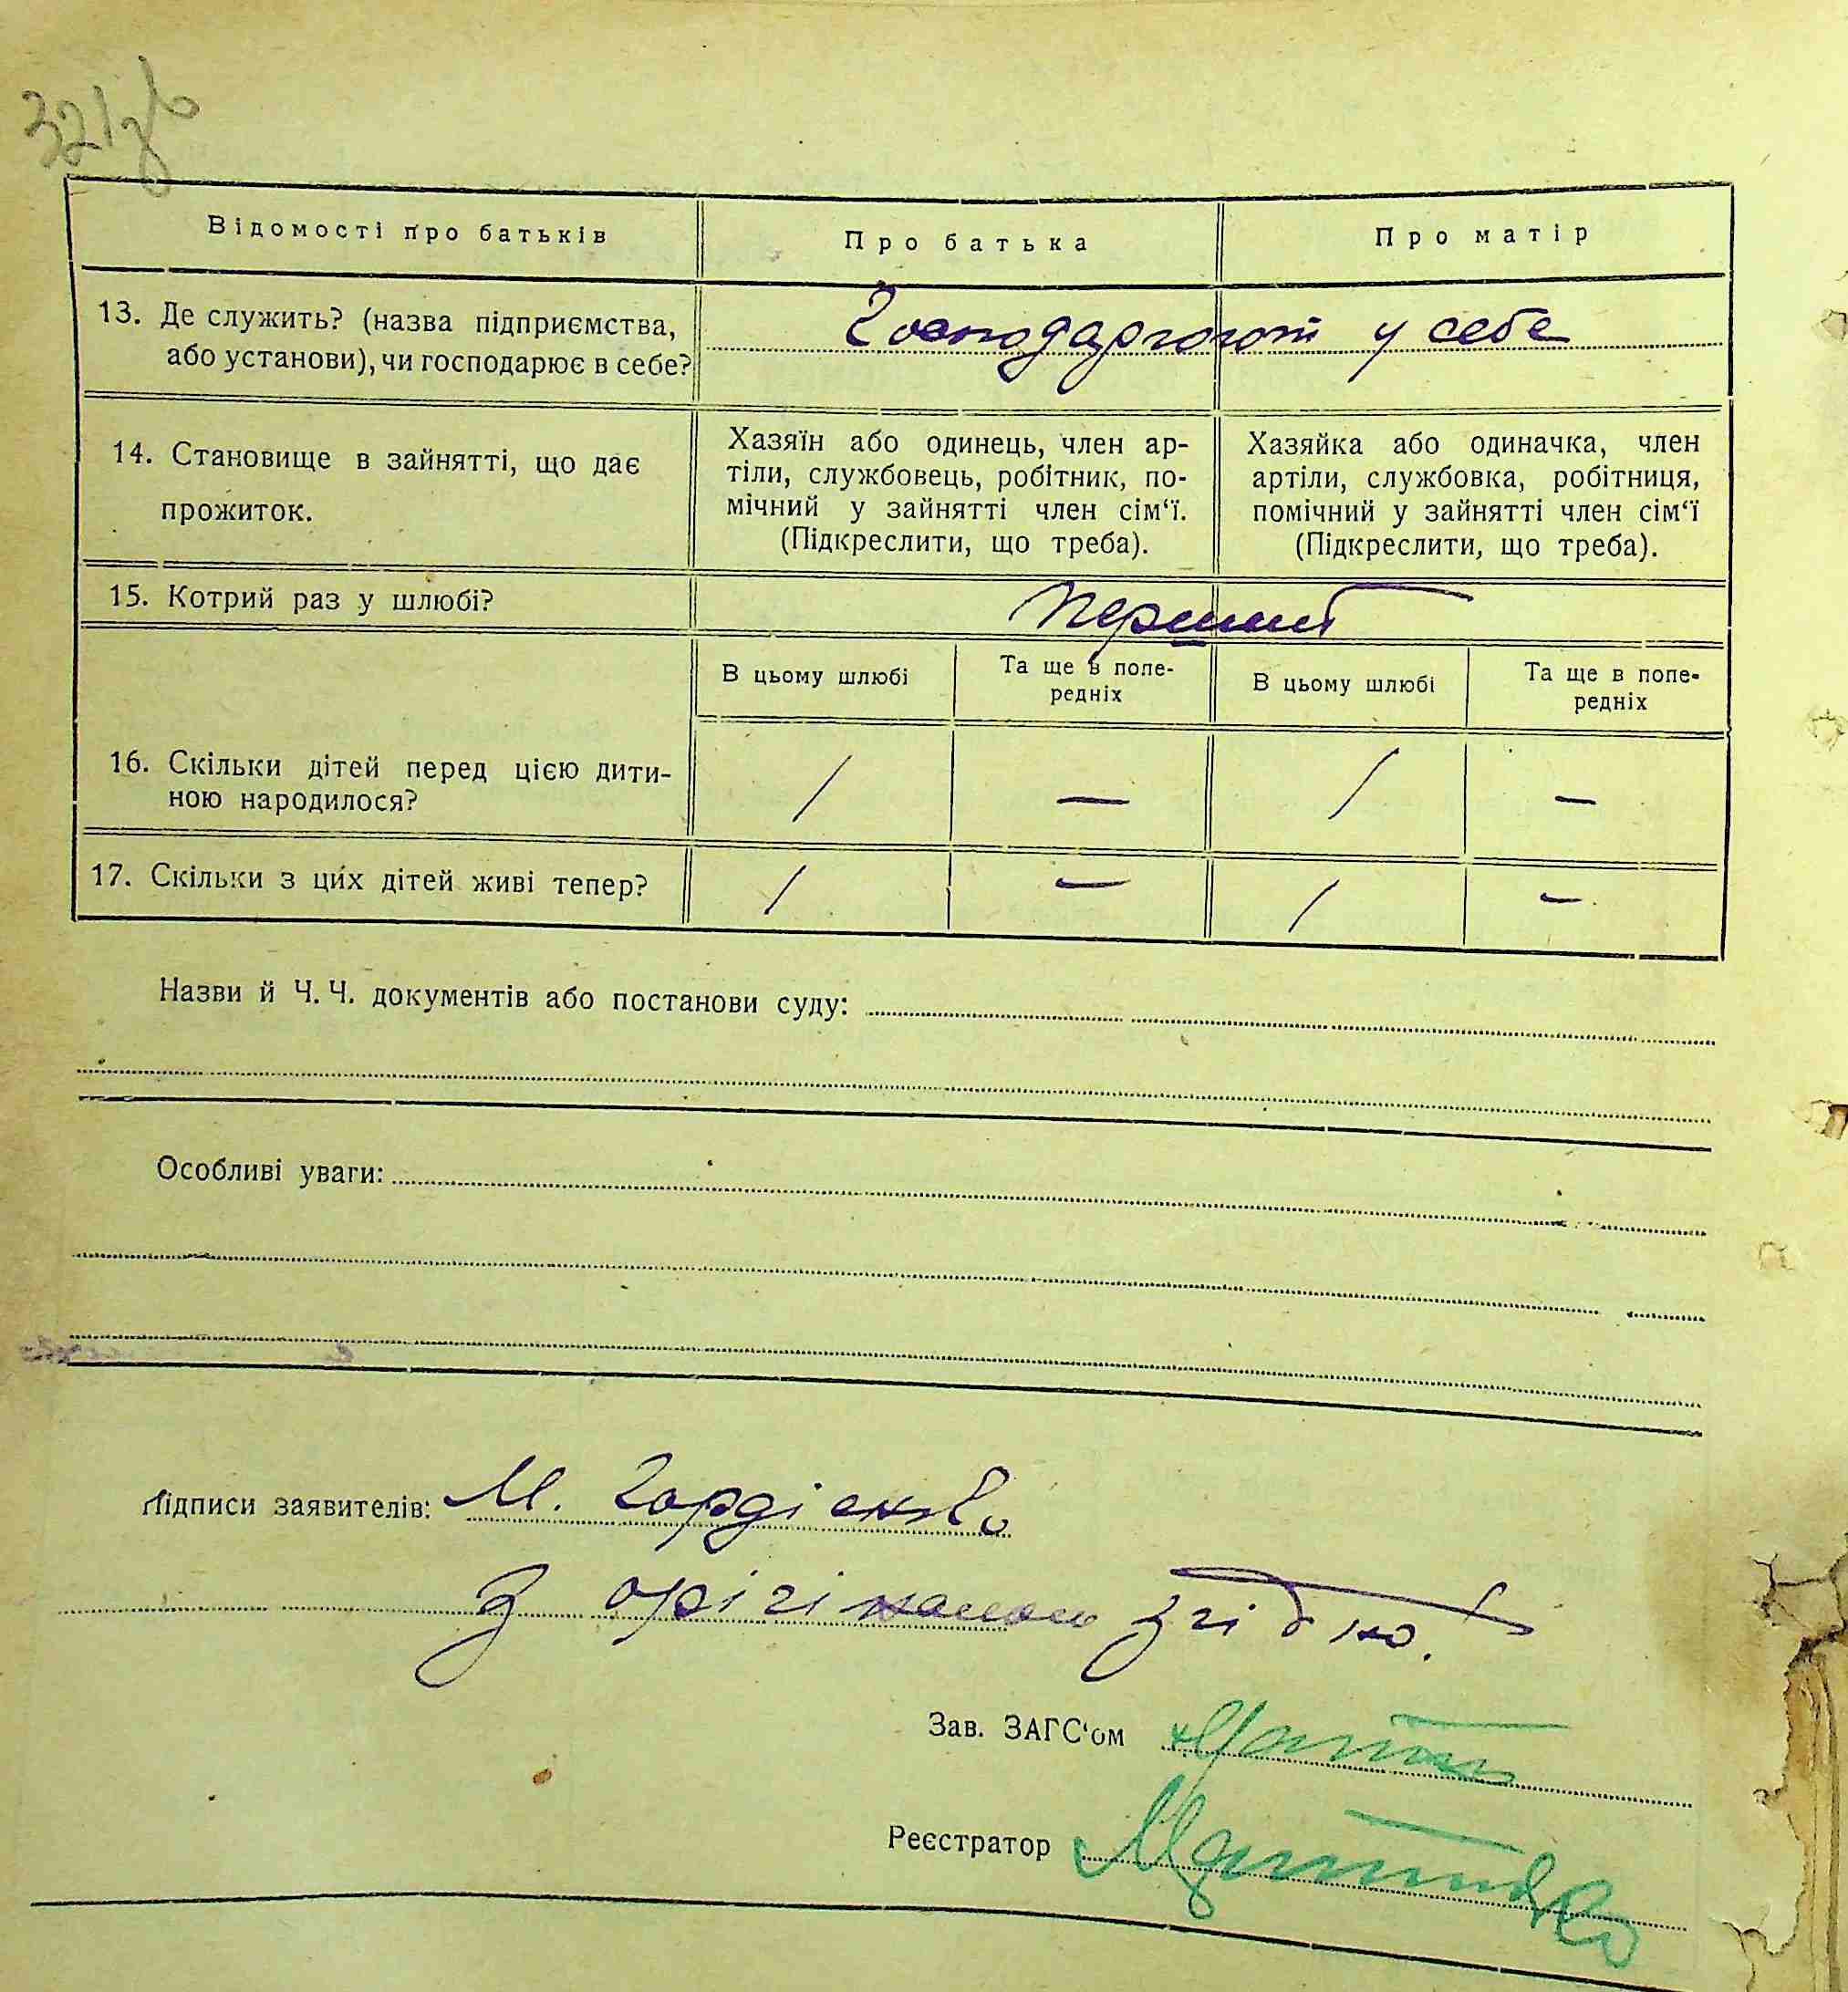 321зв
Відомості про батьків
Про батька
Про матір
13. Де служить? (назва підприємства,
або установи), чи господарює в себе?
Господарюють у себе
14. Становище в зайнятті, що дає
прожиток.
Хазяїн або одинець, член ар-
тіли, службовець, робітник, по-
мічний у зайнятті член сім‘ї.
(Підкреслити, що треба).
Хазяйка або одиначка, член
артіли, службовка, робітниця,
помічний у зайнятті член сім‘ї
(Підкреслити, що треба).
15. Котрий раз у шлюбі?
Перший
В цьому шлюбі
Та ще в попе-
редніх
В цьому шлюбі
Та ще в попе-
редніх
16. Скільки дітей перед цією дити-
ною народилося?
/ — / —
17. Скільки з цих дітей живі тепер?
/ — / —
Назви й Ч. Ч. документів або постанови суду:
Особливі уваги:
Підписи заявителів: М. Гордієнко
З орігіналом згідно.
Зав. ЗАГС‘ом
Реєстратор